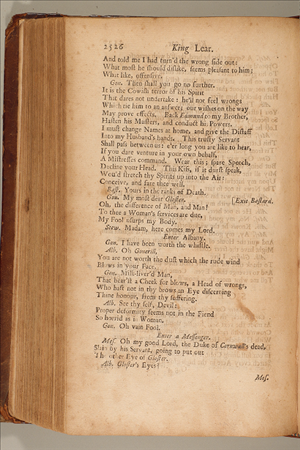 2526 King Lear.
And told me I had turn'd the wrong side out:
What most he should dislike, seems pleasant to him;
What like, offensive.
Gon. Then shall you go no further.
It is the Cowish terror of his Spirit
That dares not undertake: he'll not feel wrongs
Which tie him to an answer; our wishes on the way
May prove effects. Back Edmund to my Brother,
Hasten his Musters, and conduct his Powers.
I must change Names at home, and give the Distaff
Into my Husband's hands. This trusty Servant
Shall pass between us: e'er long you are like to hear,
If you dare venture in your own behalf,
A Mistresses command. Wear this; spare Speech,
Decline your Head. This Kiss, if it durst speak,
Wou'd stretch thy Spirits up into the Air:
Conceive, and fare thee well.
Bast. Yours in the ranks of Death.
Gon. My most dear Gloster. [Exit Bastard.
Oh, the difference of Man, and Man!
To thee a Woman's services are due,
My Fool usurps my Body.
Stew. Madam, here comes my Lord.
Enter Albany.
Gon. I have been worth the whistle.
Alb. Oh Gonerill,
You are not worth the dust which the rude wind
Blows in your Face.
Gon. Milk-liver'd Man,
That bear'st a Cheek for blows, a Head for wrongs,
Who hast not in thy brows an Eye discerning
Thine honour, from thy suffering.
Alb. See thy self, Devil:
Proper deformity seems not in the Fiend
So horrid as in Woman.
Gon. Oh vain Fool.
Enter a Messenger.
Mes. Oh my good Lord, the Duke of Cornwall's dead,
Slain by his Servant, going to put out
The other Eye of Gloster.
Alb. Gloster's Eyes!
Mes.